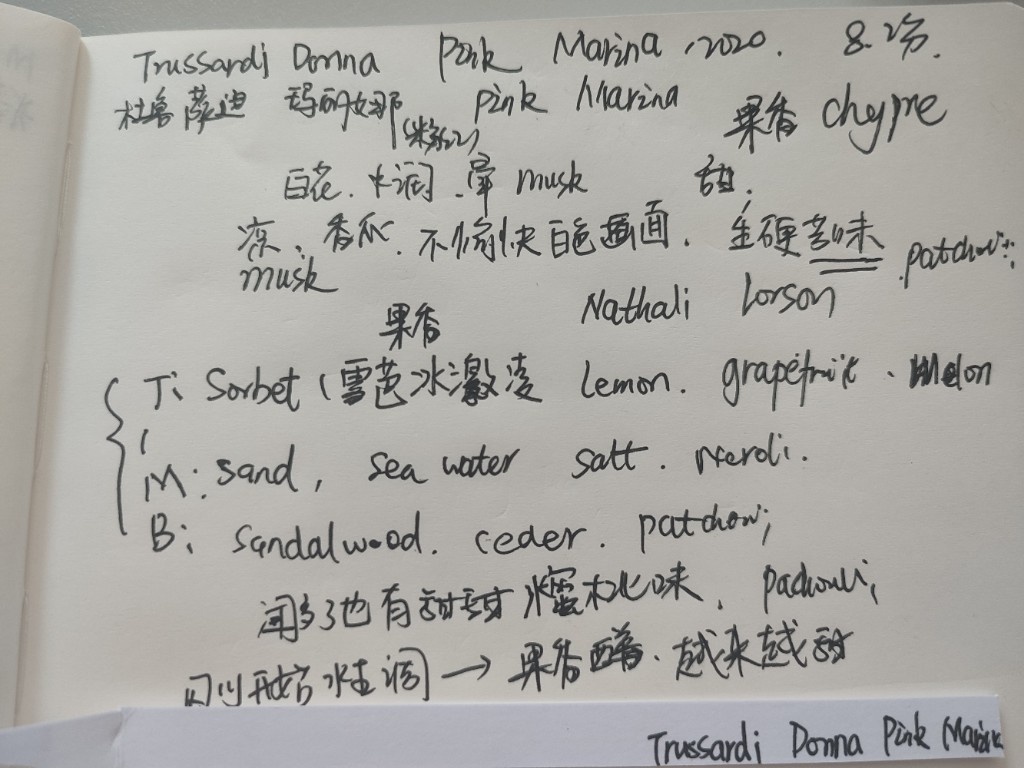 Trussardi Donna Pink Marina, 2020. 8.2分.
杜鲁萨迪 玛丽娜 Pink Marina
(粉红)
果香 chypre
白花. 水润. 晕 musk 甜,
凉、香瓜. 不愉快白色画面. 生硬苦味 patchouli.
musk
果香 Nathali Lorson
T: Sorbet (雪芭冰激凌 Lemon. grapefruit. Melon
M: sand, sea water salt. Neroli.
B: sandalwood. ceder. patchoui
闻多了也有甜甜蜜桃味, pachouli,
开始水生调 → 果香西普. 越来越甜
Trussardi Donna Pink Marina